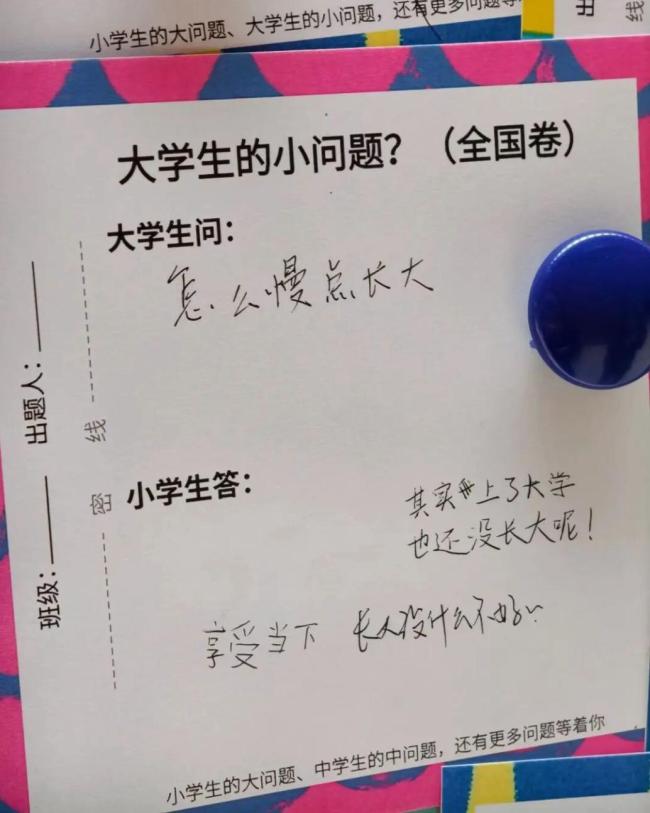 小学生的大问题、大学生的小问题，还有更多问题等
线
大学生的小问题？（全国卷）
大学生问：
怎么慢点长大
出题人：
线
密
班级：
小学生答：
其实上了大学
也还没长大呢！
享受当下 长大没什么不好
小学生的大问题、中学生的中问题，还有更多问题等着你